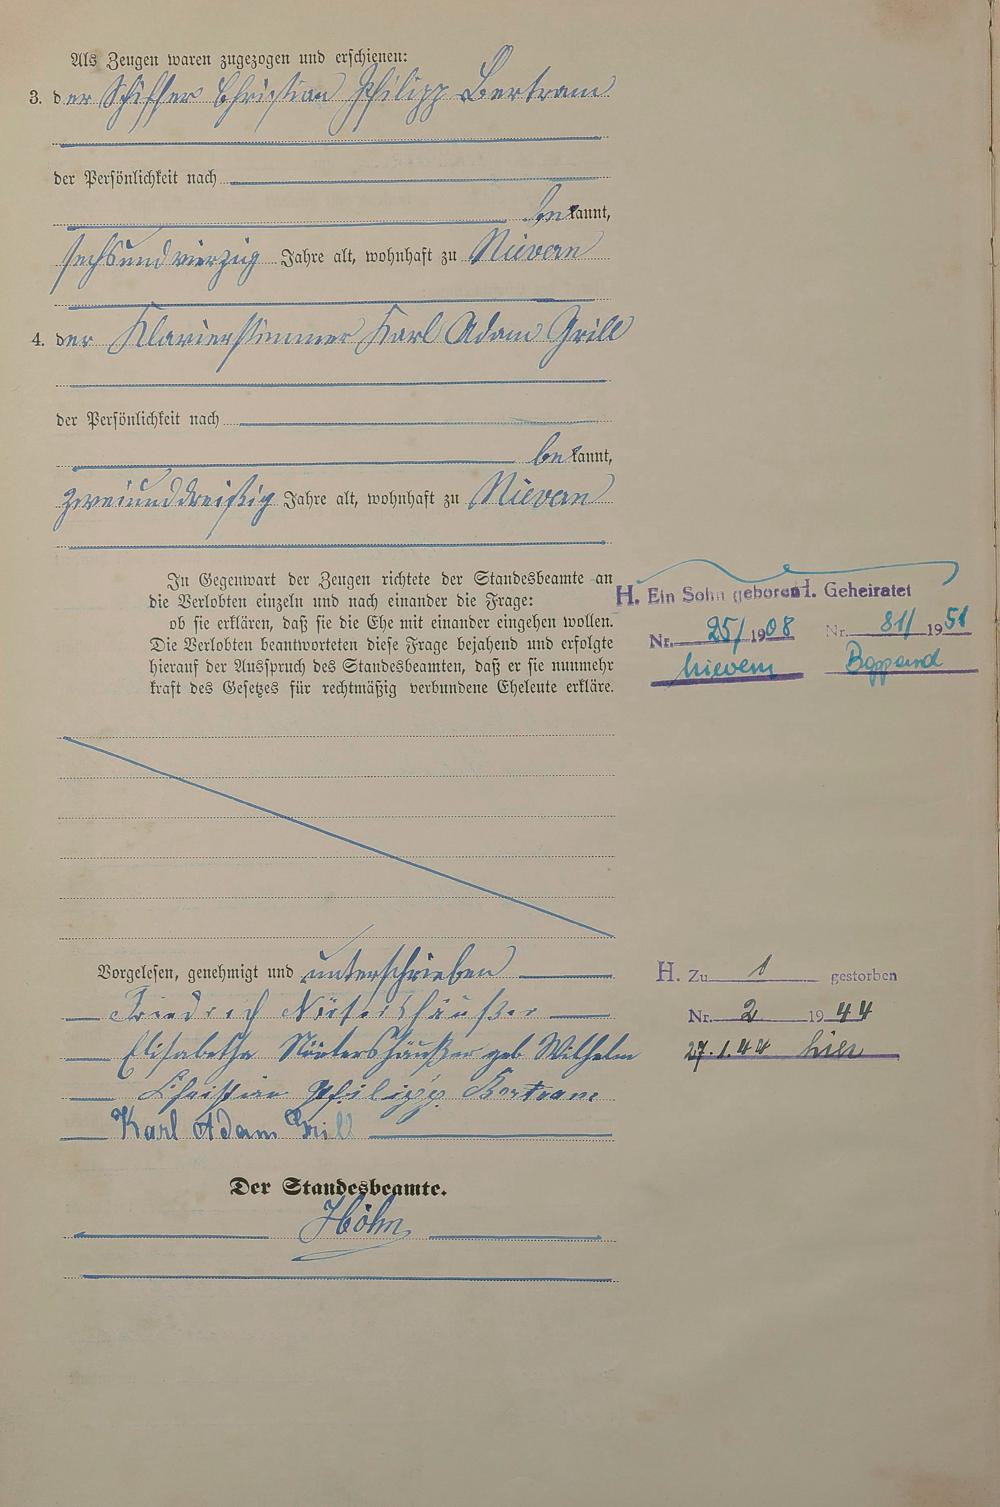 Als Zeugen waren zugezogen und erschienen:
3. der Schiffer Christian Philipp Bertram
der Persönlichkeit nach
bekannt,
sechsundvierzig Jahre alt, wohnhaft zu Nievern
4. der Klavierstimmer Karl Adam Grill
der Persönlichkeit nach
bekannt,
zweiunddreißig Jahre alt, wohnhaft zu Nievern
In Gegenwart der Zeugen richtete der Standesbeamte an
die Verlobten einzeln und nach einander die Frage:
ob sie erklären, daß sie die Ehe mit einander eingehen wollen.
Die Verlobten beantworteten diese Frage bejahend und erfolgte
hierauf der Ausspruch des Standesbeamten, daß er sie nunmehr
kraft des Gesetzes für rechtmäßig verbundene Eheleute erkläre.
H. Ein Sohn geboren
Nr. 25/1908
Nievern
1. Geheiratet
Nr. 81/1951
Boppard
Vorgelesen, genehmigt und unterschrieben
Friedrich Nörtershäußer
Elisabetha Nörtershäußer geb Wilhelm
Christian Philipp Bertram
Karl Adam Grill
H. Zu 1 gestorben
Nr. 2 1944
27.1.44 hier
Der Standesbeamte.
Höhn